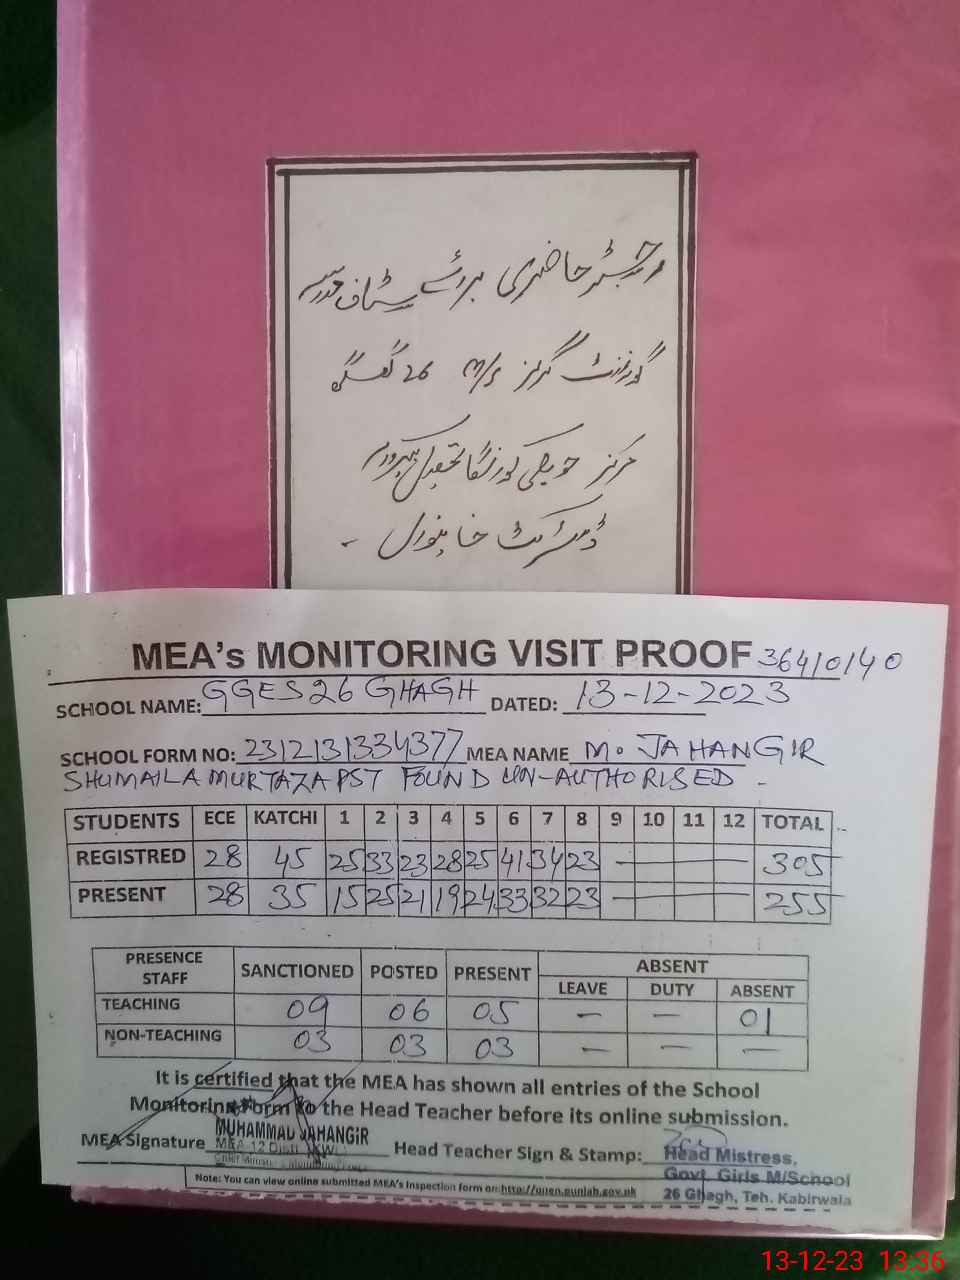 رجسٹر حاضری برائے سٹاف مدرسہ
گورنمنٹ گرلز m/s 26 گھگ
مرکز حویلی کورنگا تحصیل کبیروالہ
ڈسٹرکٹ خانیوال -
MEA's MONITORING VISIT PROOF 36410140
SCHOOL NAME: GGES 26 GHAGH DATED: 13-12-2023
SCHOOL FORM NO: 2312131334377 MEA NAME M. JAHANGIR
SHUMAILA MURTAZA PST FOUND UN-AUTHORISED -
STUDENTS ECE KATCHI 1 2 3 4 5 6 7 8 9 10 11 12 TOTAL
REGISTRED 28 45 25 33 23 28 25 41 34 23 — 305
PRESENT 28 35 15 25 21 19 24 33 32 23 — 255
PRESENCE STAFF SANCTIONED POSTED PRESENT ABSENT
LEAVE DUTY ABSENT
TEACHING 09 06 05 — — 01
NON-TEACHING 03 03 03 — — —
It is certified that the MEA has shown all entries of the School
Monitoring Form to the Head Teacher before its online submission.
MEA Signature MUHAMMAD JAHANGIR
MEA-12 Distt. KWL
Head Teacher Sign & Stamp: Head Mistress,
Govt. Girls M/School
26 Ghagh, Teh. Kabirwala
Note: You can view online submitted MEA's Inspection form on: http://open.punjab.gov.pk
13-12-23 13:36